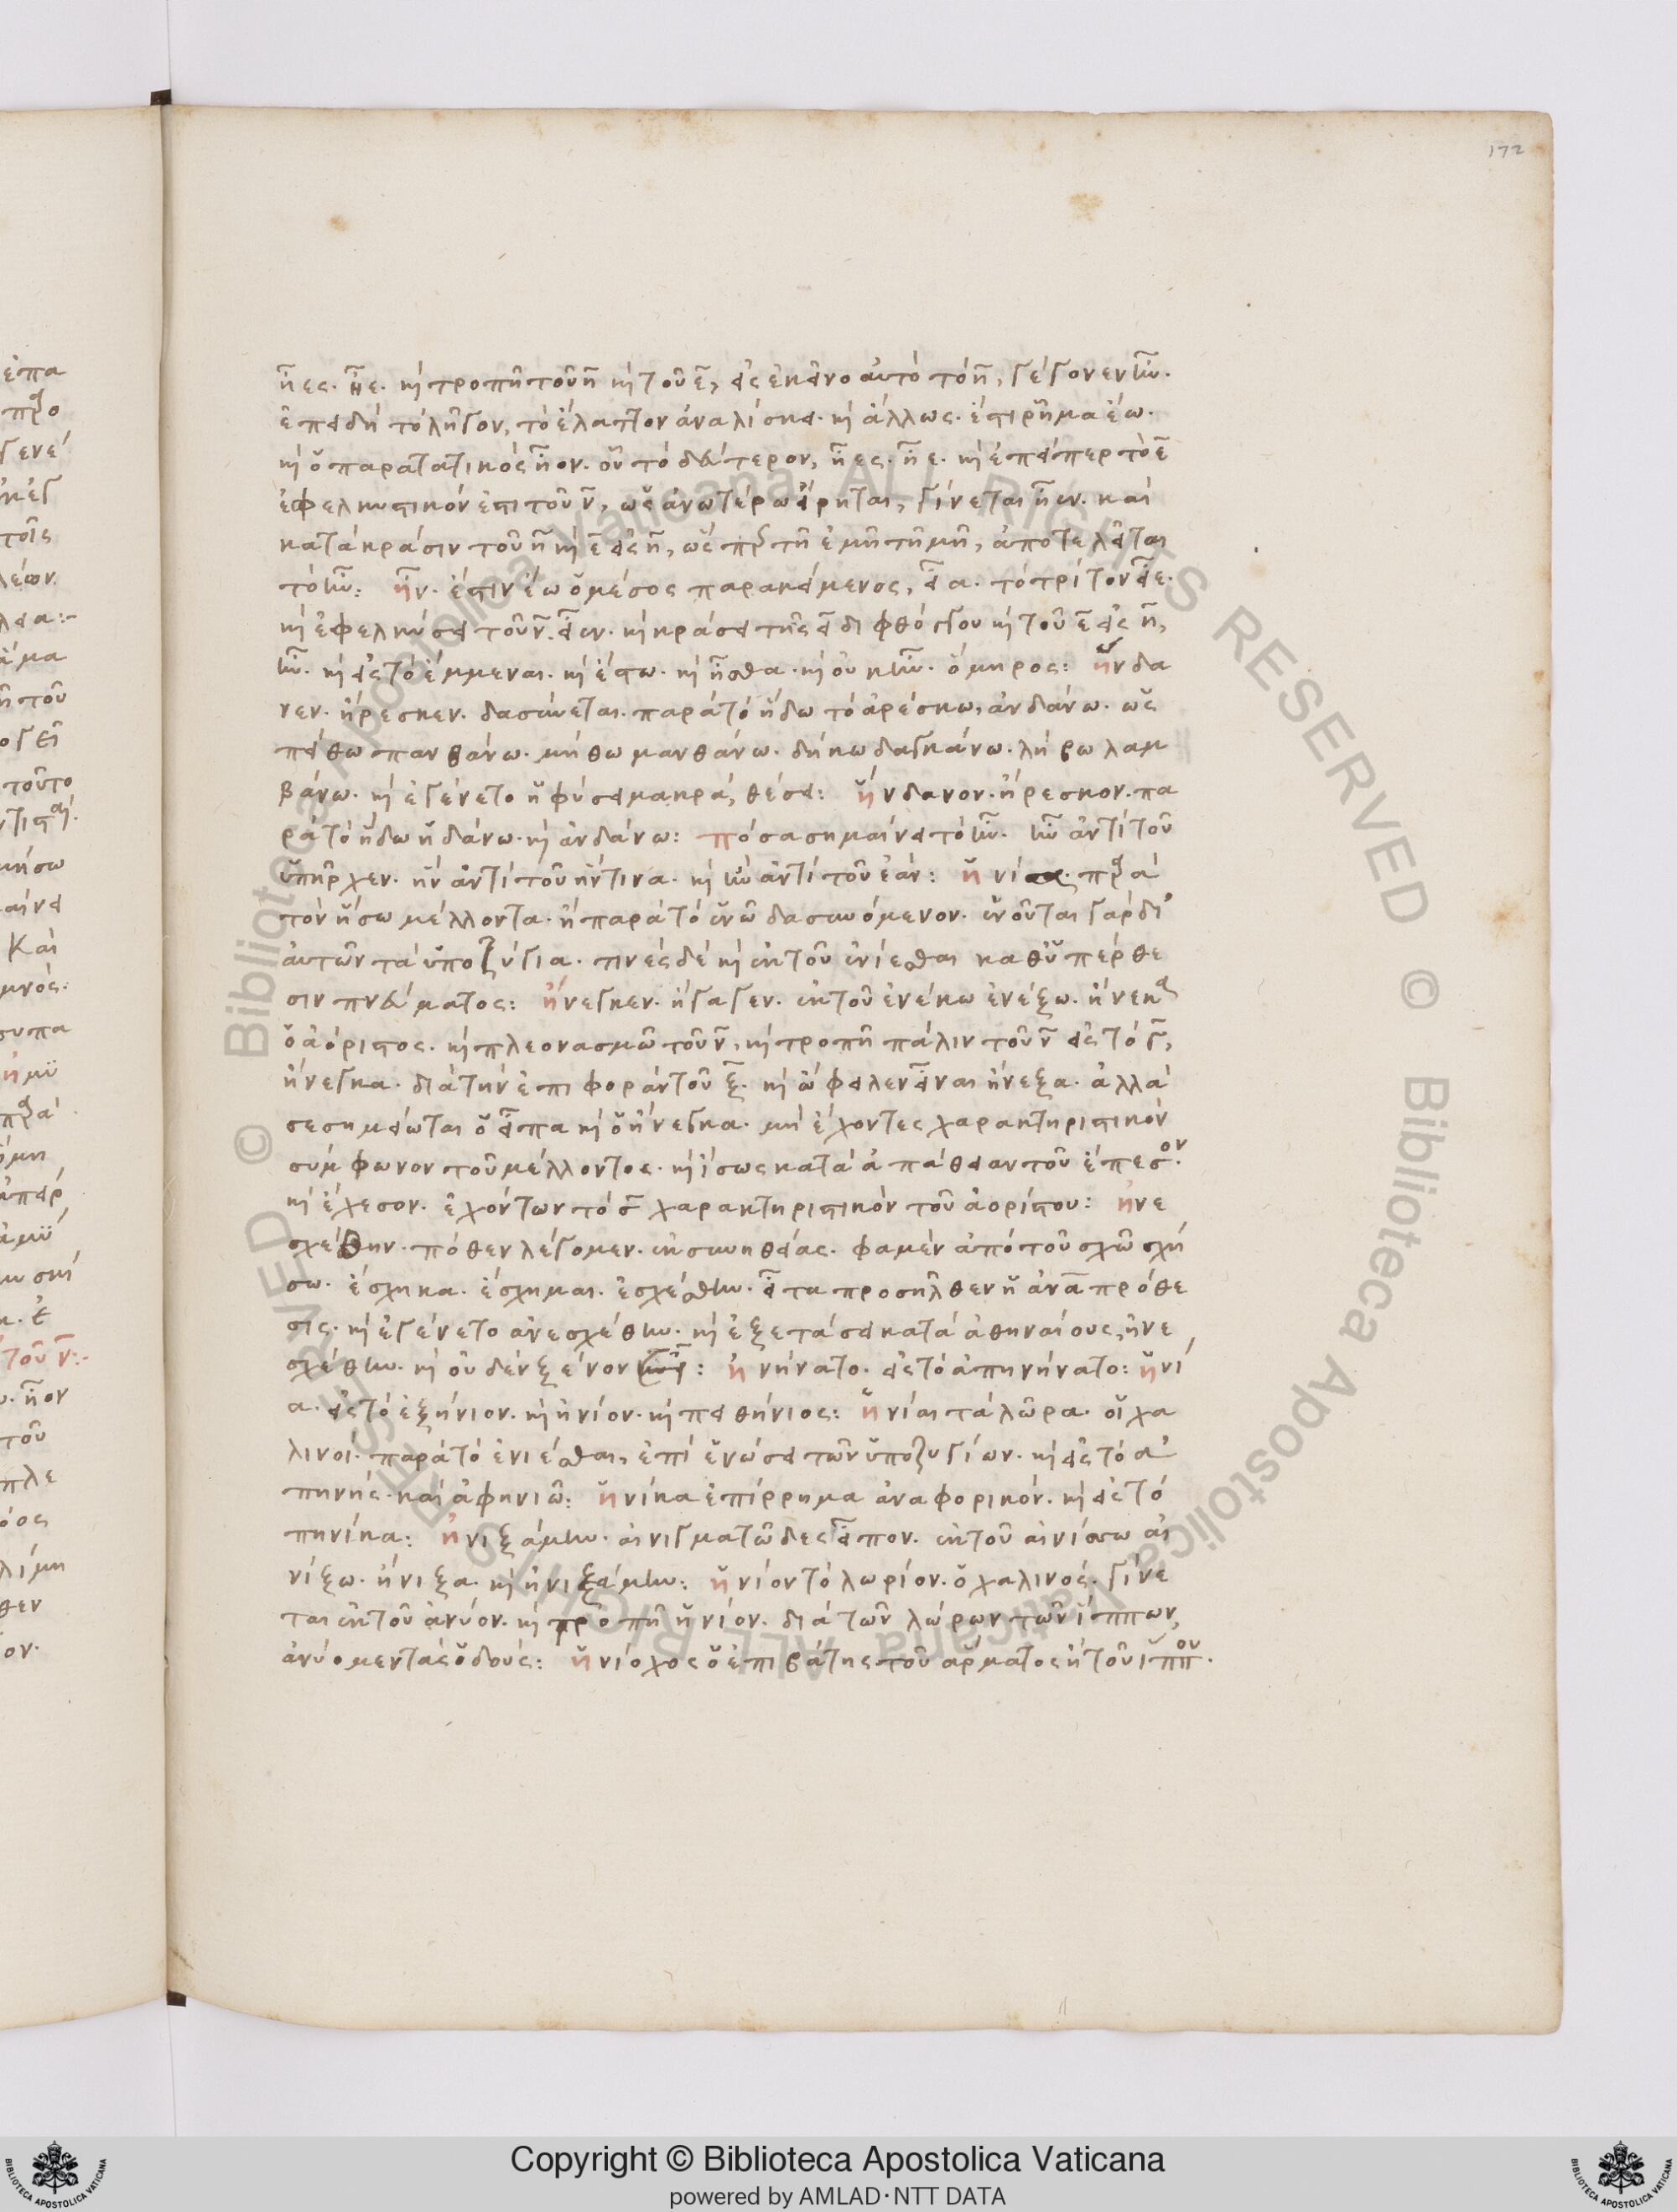 172
ἦες. ἦε. καὶ τροπῆ τοῦ η καὶ τοῦ ε, εἰς ἐκεῖνο αὐτὸ τὸ η, γέγονεν ἦν.
ἐπειδὴ τὸ λῆγον, τὸ ἔλαττον ἀναλίσκει. καὶ ἄλλως. ἔστι ῥῆμα ἔω.
καὶ ὁ παρατατικὸς ἦον. οὗ τὸ δεύτερον, ἦες. ἦε. καὶ ἐπείπερ τὸ ε
ἐφελκυστικόν ἐστι τοῦ ν, ὡς ἀνωτέρω εἴρηται, γίνεται ἦεν. καὶ
κατὰ κράσιν τοῦ η καὶ ε εἰς η, ὡς ἐμὴ τῆ μῆ, ἀποτελεῖται
τὸ ἦν: ἦν. ἔστιν ἔω ὁ μέσος παρακείμενος, εἶα. τὸ τρίτον εἶε.
καὶ ἐφελκύσει τοῦ ν. εἶεν. καὶ κράσει τῆς ει διφθόγγου καὶ τοῦ ε εἰς η,
ἦν. καὶ εἰς τὸ ἔμμεναι. καὶ ἔστω. καὶ ἦσθα. καὶ οὐκ ἦν. ὅμηρος: ἥνδα
νεν. ἤρεσκεν. δασύνεται. παρὰ τὸ ἥδω τὸ ἀρέσκω, ἁνδάνω. ὡς
πείθω πανθάνω. μήθω μανθάνω. δήκω δαγκάνω. λήβω λαμ
βάνω. καὶ ἐγένετο ἡ φύσει μακρά, θέσει: ἥνδανον. ἤρεσκον. πα
ρὰ τὸ ἥδω ἡδάνω. καὶ ἁνδάνω: πόσα σημαίνει τὸ ἦν. ἦν ἀντὶ τοῦ
ὑπῆρχεν. ἣν ἀντὶ τοῦ ἥντινα. καὶ ἢν ἀντὶ τοῦ ἐάν: ἡνία.
τὸν ἥσω μέλλοντα. ἢ παρὰ τὸ ἑνῶ δασυνόμενον. ἑνοῦνται γὰρ δι'
αὐτῶν τὰ ὑποζύγια. τινὲς δὲ καὶ ἐκ τοῦ ἐνίεσθαι καθ' ὑπέρθε
σιν πνεύματος: ἤνεγκεν. ἤγαγεν. ἐκ τοῦ ἐνέκω ἐνέξω. ἤνεκα
ὁ ἀόριστος. καὶ πλεονασμῶ τοῦ ν, καὶ τροπῆ πάλιν τοῦ ν εἰς τὸ γ,
ἤνεγκα. διὰ τὴν ἐπιφορὰν τοῦ κ. καὶ ὤφειλεν εἶναι ἤνεξα. ἀλλὰ
σεσημείωται ὁ εἶπα καὶ ὁ ἤνεγκα. μὴ ἔχοντες χαρακτηριστικὸν
σύμφωνον τοῦ μέλλοντος. καὶ ἴσως κατὰ ἀντιπάθειαν τοῦ ἔπεσον.
καὶ ἔχεσον. ἐχόντων τὸ σ χαρακτηριστικὸν τοῦ ἀορίστου: ἠνε
σχέθην. πόθεν λέγομεν. ἐκ συνηθείας. φαμὲν ἀπὸ τοῦ σχῶ σχή
σω. ἔσχηκα. ἔσχημαι. ἐσχέθην. εἶτα προσῆλθεν ἡ ἀνὰ πρόθε
σις. καὶ ἐγένετο ἀνεσχέθην. καὶ ἐξετάσει κατὰ ἀθηναίους, ἠνε
σχέθην. καὶ οὐδὲν ξένον: ἠνήνατο. εἰς τὸ ἀπηνήνατο: ἡνί
α. εἰς τὸ ἐξήνιον. καὶ ἡνίον. καὶ πειθήνιος: ἡνίαι τὰ λῶρα. οἱ χα
λινοί. παρὰ τὸ ἐνιέσθαι, ἐπὶ ἑνώσει τῶν ὑποζυγίων. καὶ εἰς τὸ ἀ
πηνής. καὶ ἀφηνιῶ: ἡνίκα ἐπίρρημα ἀναφορικόν. καὶ εἰς τὸ
πηνίκα: ἠνιξάμην. αἰνιγματῶδες εἶπον. ἐκ τοῦ αἰνίσσω αἰ
νίξω. ἤνιξα. καὶ ἠνιξάμην: ἡνίον τὸ λωρίον. ὁ χαλινός. γίνε
ται ἐκ τοῦ ἀνύον. καὶ τροπῆ ἡνίον. διὰ τῶν λώρων τῶν ἵππων,
ἀνύομεν τὰς ὁδούς: ἡνίοχος ὁ ἐπιβάτης τοῦ ἅρματος ἢ τοῦ ἵππου.
Copyright © Biblioteca Apostolica Vaticana
powered by AMLAD・NTT DATA